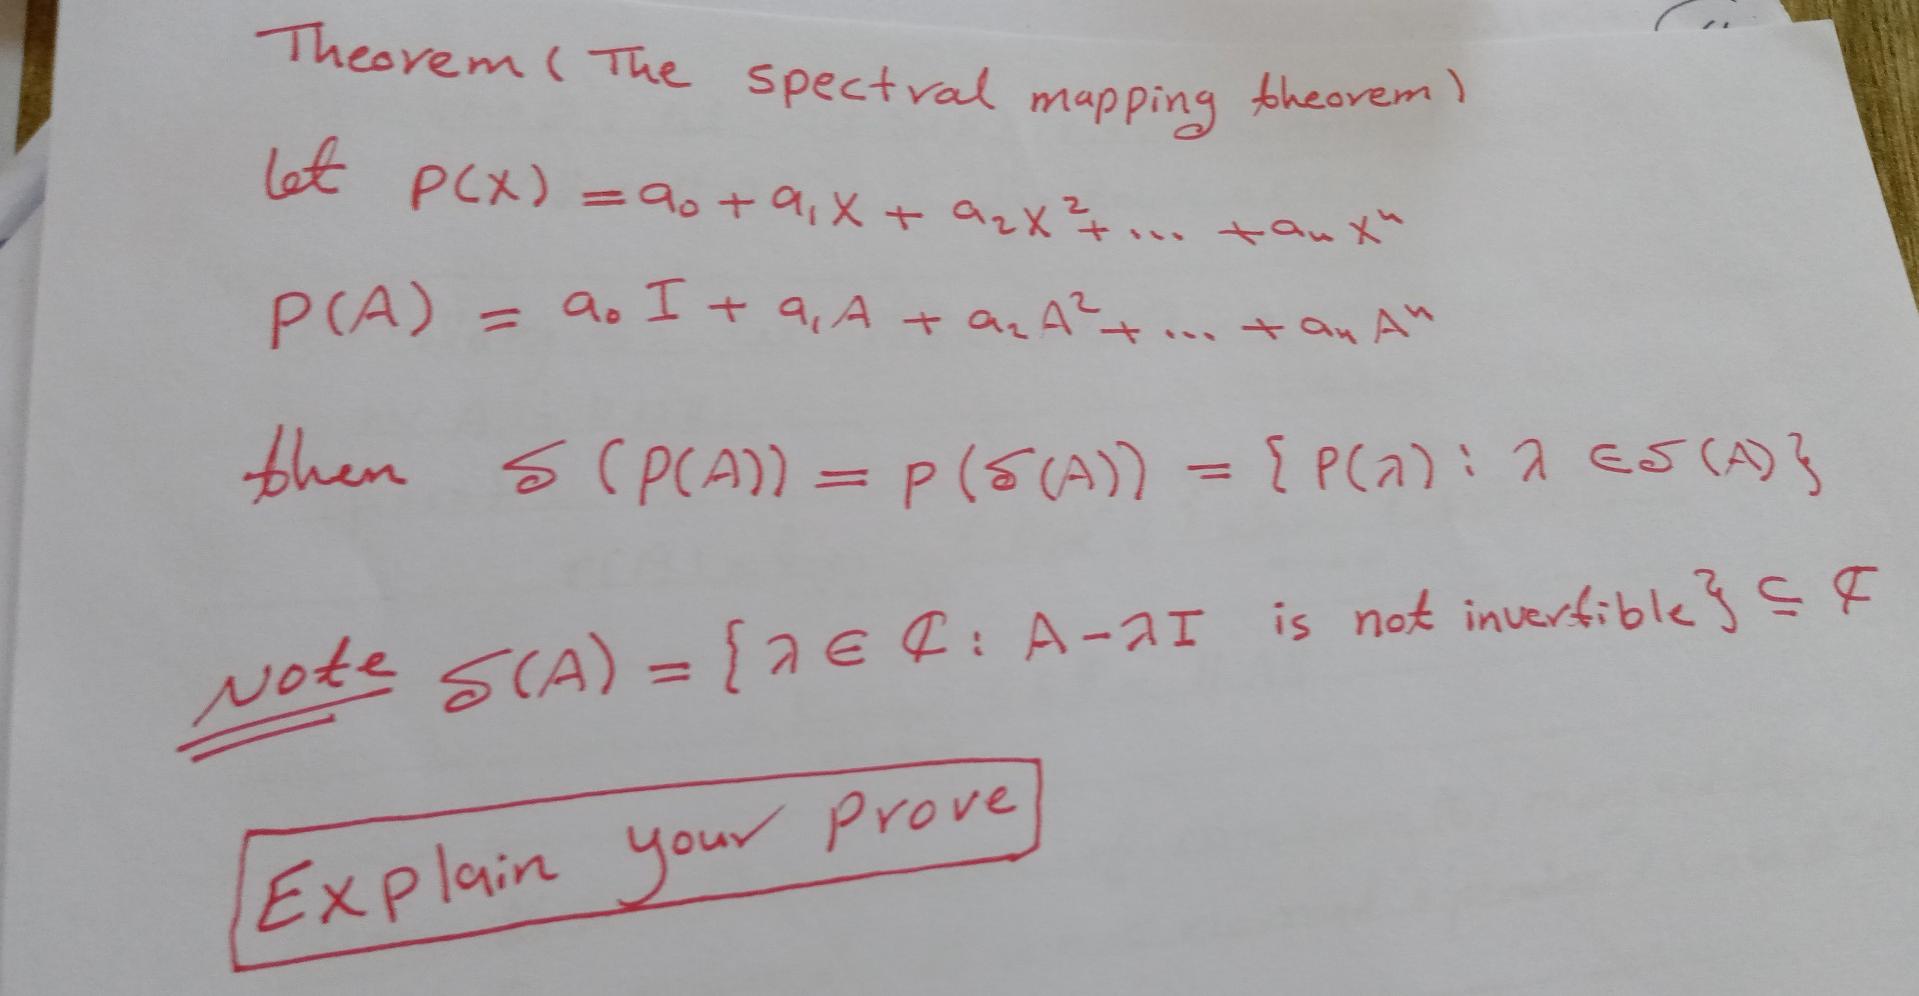 Theorem ( The spectral mapping theorem )
let P(X) = a₀ + a₁X + a₂X² + ... + aₙXⁿ
P(A) = a₀I + a₁A + a₂A² + ... + aₙAⁿ
then δ(P(A)) = P(δ(A)) = {P(λ) : λ ∈ δ(A)}
Note δ(A) = {λ ∈ ℂ : A-λI is not invertible} ⊆ ℂ
Explain your prove